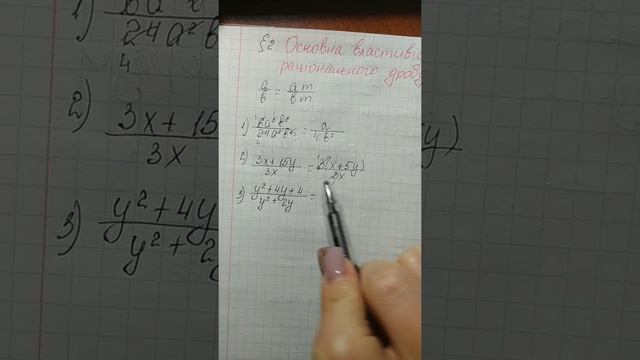 §2 Основна властивіс
раціонального дробу
a/b = am/bm
1) 6a³b²/24a²b⁴ = a/4b²
2) 3x + 15y/3x = 3(x + 5y)/3x
3) y² + 4y + 4/y² + 2y =